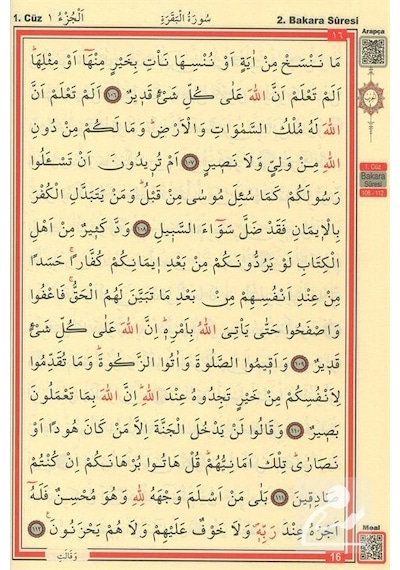 1. Cüz اَلْجُزْءُ ١ سُورَةُ الْبَقَرَةِ 2. Bakara Sûresi
١٦
Arapça
مَا نَنْسَخْ مِنْ اٰيَةٍ اَوْ نُنْسِهَا نَأْتِ بِخَيْرٍ مِنْهَٓا اَوْ مِثْلِهَاۜ
اَلَمْ تَعْلَمْ اَنَّ اللّٰهَ عَلٰى كُلِّ شَيْءٍ قَد۪يرٌ ﴿١٠٦﴾ اَلَمْ تَعْلَمْ اَنَّ
اللّٰهَ لَهُ مُلْكُ السَّمٰوَاتِ وَالْاَرْضِۜ وَمَا لَكُمْ مِنْ دُونِ
اللّٰهِ مِنْ وَلِيٍّ وَلَا نَص۪يرٍ ﴿١٠٧﴾ اَمْ تُر۪يدُونَ اَنْ تَسْـَٔلُوا
رَسُولَكُمْ كَمَا سُئِلَ مُوسٰى مِنْ قَبْلُۜ وَمَنْ يَتَبَدَّلِ الْكُفْرَ
بِالْا۪يمَانِ فَقَدْ ضَلَّ سَوَٓاءَ السَّب۪يلِ ﴿١٠٨﴾ وَدَّ كَث۪يرٌ مِنْ اَهْلِ
الْكِتَابِ لَوْ يَرُدُّونَكُمْ مِنْ بَعْدِ ا۪يمَانِكُمْ كُفَّارًاۚ حَسَدًا
مِنْ عِنْدِ اَنْفُسِهِمْ مِنْ بَعْدِ مَا تَبَيَّنَ لَهُمُ الْحَقُّۚ فَاعْفُوا
وَاصْفَحُوا حَتّٰى يَأْتِيَ اللّٰهُ بِاَمْرِه۪ۜ اِنَّ اللّٰهَ عَلٰى كُلِّ شَيْءٍ
قَد۪يرٌ ﴿١٠٩﴾ وَاَق۪يمُوا الصَّلٰوةَ وَاٰتُوا الزَّكٰوةَۜ وَمَا تُقَدِّمُوا
لِاَنْفُسِكُمْ مِنْ خَيْرٍ تَجِدُوهُ عِنْدَ اللّٰهِۜ اِنَّ اللّٰهَ بِمَا تَعْمَلُونَ
بَص۪يرٌ ﴿١١٠﴾ وَقَالُوا لَنْ يَدْخُلَ الْجَنَّةَ اِلَّا مَنْ كَانَ هُودًا اَوْ
نَصَارٰىۜ تِلْكَ اَمَانِيُّهُمْۜ قُلْ هَاتُوا بُرْهَانَكُمْ اِنْ كُنْتُمْ
صَادِق۪ينَ ﴿١١١﴾ بَلٰى مَنْ اَسْلَمَ وَجْهَهُ لِلّٰهِ وَهُوَ مُحْسِنٌ فَلَهُٓ
اَجْرُهُ عِنْدَ رَبِّه۪ۖ وَلَا خَوْفٌ عَلَيْهِمْ وَلَا هُمْ يَحْزَنُونَ۟ ﴿١١٢﴾
1. Cüz
Bakara
Sûresi
106 - 112
وَقَالَتِ
16
Meal